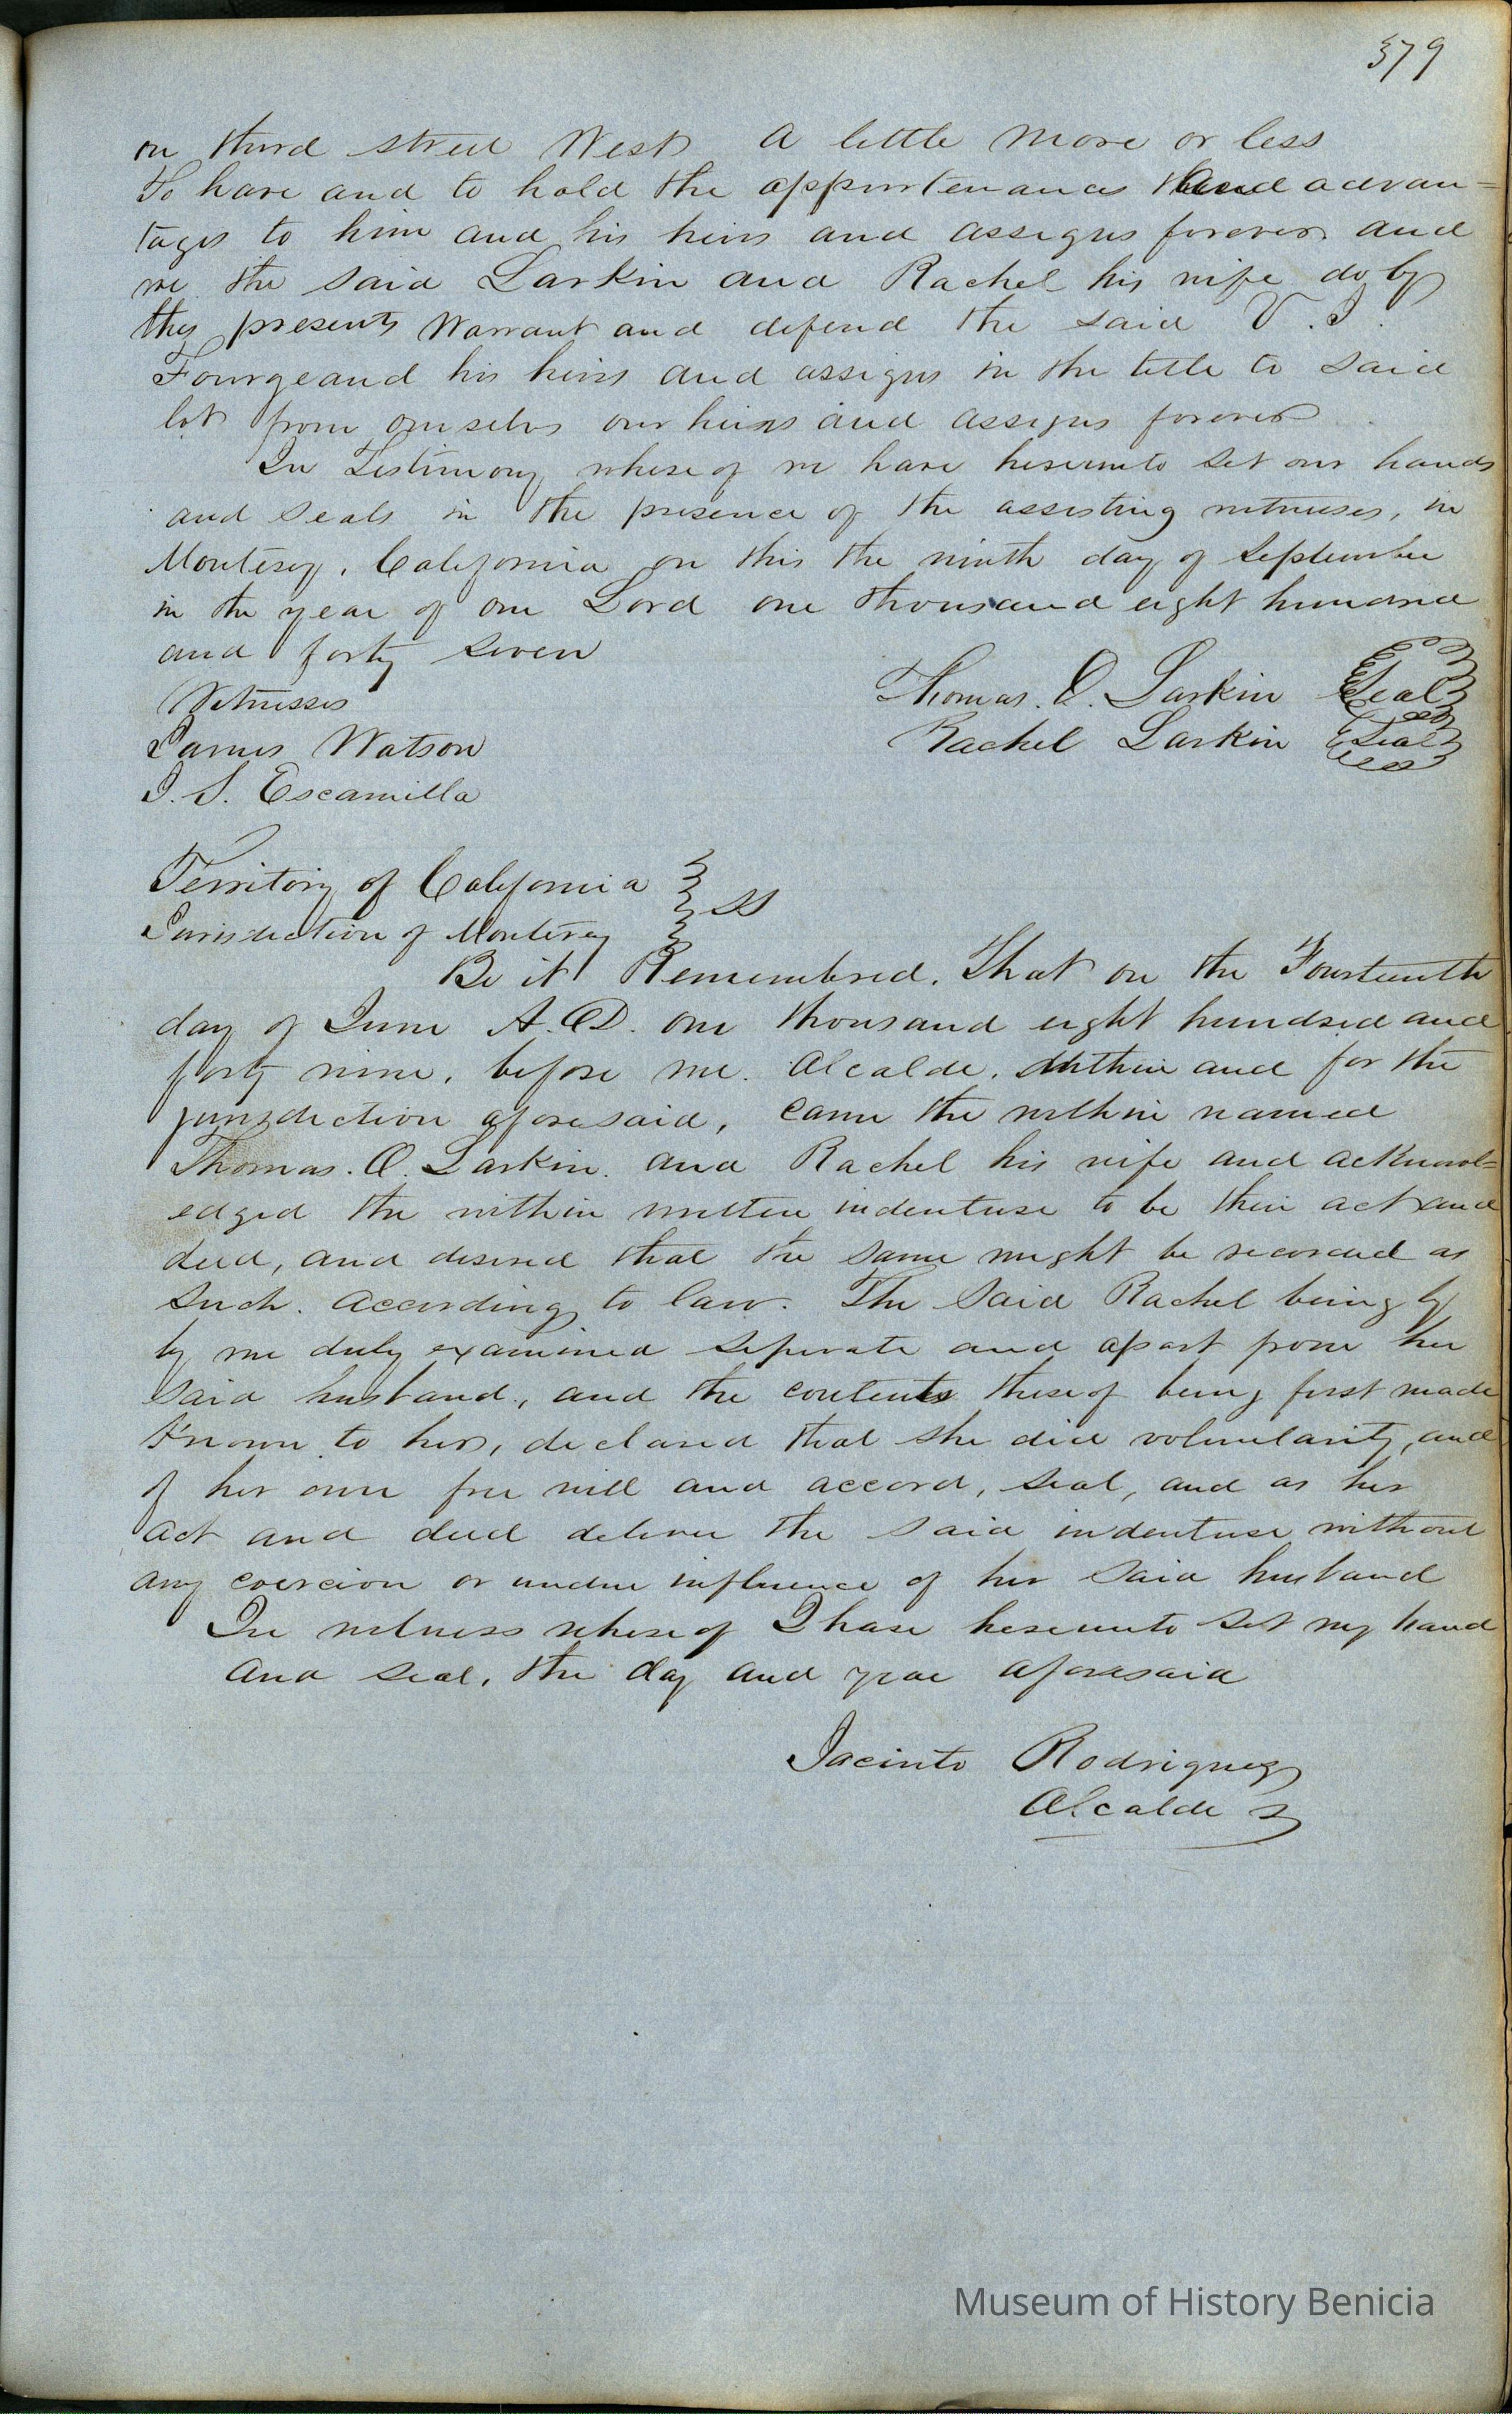 379
on third street West a little more or less
To have and to hold the appurtenances and advan=
tages to him and his heirs and assigns forever and
we the said Larkin and Rachel his wife do by
thes presents Warrant and defend the said V. J.
Fourgeaud his heirs and assigns in the title to said
lot from ourselvs our heirs and assigns forever
In Testimony whereof we have hereunto set our hands
and seals in the presence of the assisting witnesses, in
Monterey, California on this the ninth day of September
in the year of our Lord one thousand eight hundred
and forty seven
Witnesses
Thomas. O. Larkin Seal
James Watson
Rachel Larkin Seal
J. S. Escamilla
Territory of California
ss
Jurisdiction of Monterey
Be it Remembered. That on the Fourteenth
day of June A.D. one thousand eight hundred and
forty nine, before me. Alcalde. within and for the
jurisdiction aforesaid, came the within named
Thomas. O. Larkin. and Rachel his wife and acknowl=
edged the within written indenture to be their act and
deed, and desired that the same might be recorded as
such. according to law. The said Rachel being by
by me duly examined seperate and apart from her
said husband, and the contents thereof being first made
known to her, declared that she did volunlarity, and
of her own free will and accord, seal, and as her
act and deed deliver the said indenture without
any coercion or undue influence of her said husband
In witness whereof I have hereunto set my hand
and seal, the day and year aforesaid
Jacinto Rodriguez
Alcalde
Museum of History Benicia